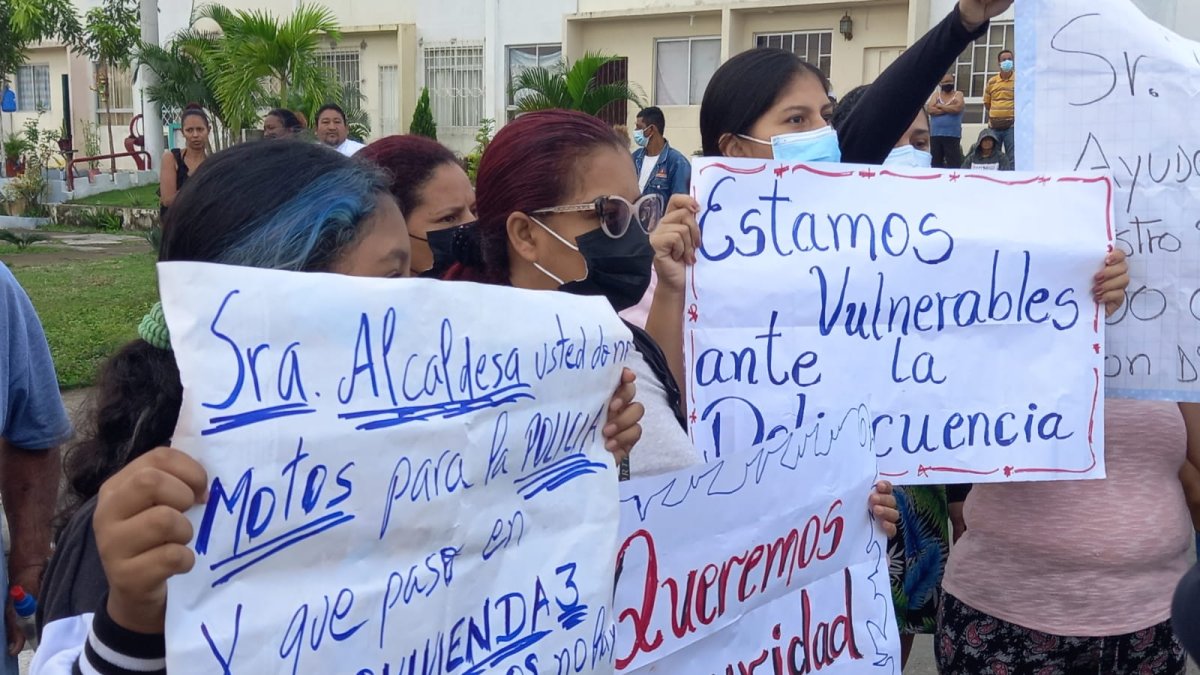 Sra. Alcaldesa usted
Motos para la POLICIA
Y que paso en
VIVIENDA 3
no hay
Estamos
Vulnerables
ante la
Delicuencia
Queremos
Sr.
Ayud